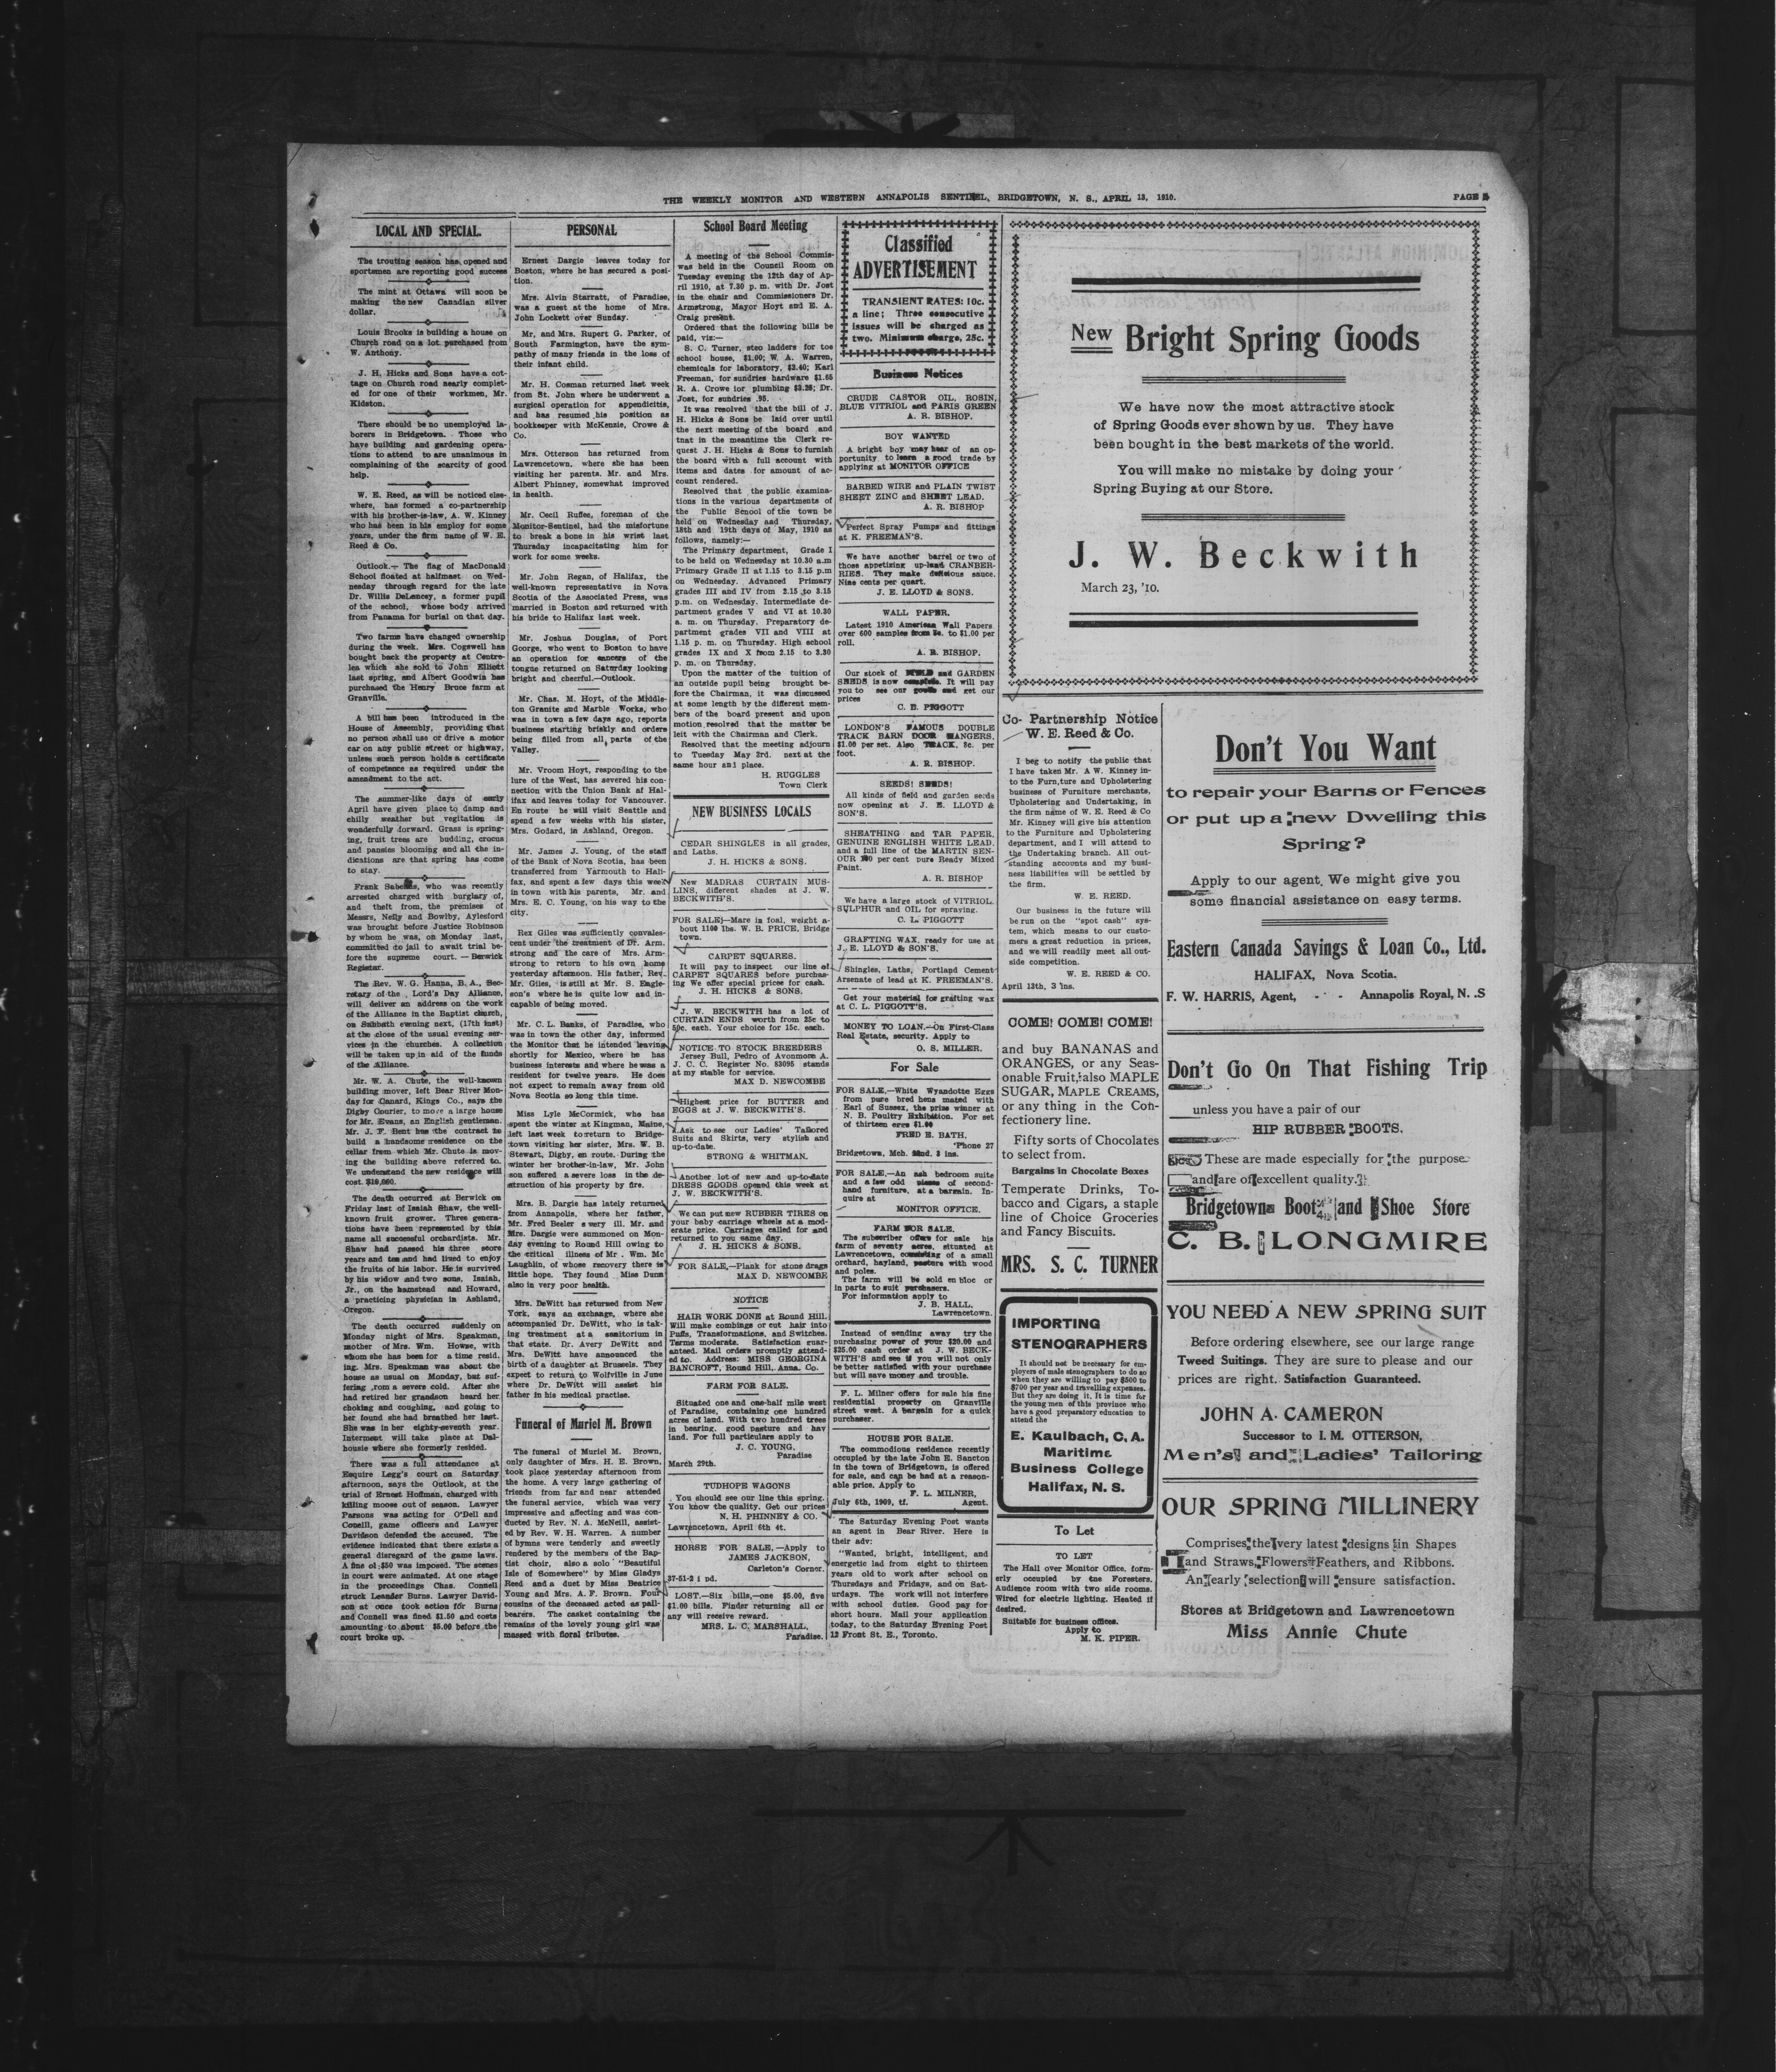 THE WEEKLY MONITOR AND WESTERN ANNAPOLIS SENTINEL, BRIDGETOWN, N. S., APRIL 13, 1910.
PAGE
LOCAL AND SPECIAL.
The trouting season has opened and
sportsmen are reporting good success
The mint at Ottawa will soon be
making the new Canadian silver
dollar.
Louis Brooks is building a house on
Church road on a lot purchased from
W. Anthony.
J. H. Hicks and Sons have a cot-
tage on Church road nearly complet-
ed for one of their workmen, Mr.
Kidston.
There should be no unemployed la-
borers in Bridgetown. Those who
have building and gardening opera-
tions to attend to are unanimous in
complaining of the scarcity of good
help.
W. E. Reed, as will be noticed else-
where, has formed a co-partnership
with his brother-is-law, A. W. Kinney
who has been in his employ for some
years, under the firm name of W. E.
Reed & Co.
Outlook.— The flag of MacDonald
School floated at halfmast on Wed-
nesday through regard for the late
Dr. Willis DeLancey, a former pupil
of the school, whose body arrived
from Panama for burial on that day.
Two farms have changed ownership
during the week. Mrs. Cogswell has
bought back the property at Centre-
lea which she sold to John Elliott
last spring, and Albert Goodwin has
purchased the Henry Bruce farm at
Granville.
A bill has been introduced in the
House of Assembly, providing that
no person shall use or drive a motor
car on any public street or highway,
unless such person holds a certificate
of competence as required under the
amendment to the act.
The summer-like days of early
April have given place to damp and
chilly weather but vegitation is
wonderfully forward. Grass is spring-
ing, fruit trees are budding, crocus
and pansies blooming and all the in-
dications are that spring has come
to stay.
Frank who was recently
arrested charged with burglary of,
and theft from, the premises of
Messrs, Nelly and Bowlby, Aylesford
was brought before Justice Robinson
by whom he was, on Monday last,
committed to jail to await trial be-
fore the supreme court. — Berwick
Register.
The Rev. W. G. Hanna, B. A., Sec-
retary of the Lord's Day Alliance,
will deliver an address on the work
of the Alliance in the Baptist church,
on Sabbath evening next, (17th inst)
at the close of the usual evening ser-
vices in the churches. A collection
will be taken up in aid of the funds
of the Alliance.
Mr. W. A. Chute, the well-known
building mover, left Bear River Mon-
day for Canard, Kings Co., says the
Digby Courier, to move a large house
for Mr. Evans, an English gentleman.
Mr. J. F. Bent has the contract to
build a handsome residence on the
cellar from which Mr. Chute is mov-
ing the building above referred to.
We understand the new residence will
cost.
The death occurred at Berwick on
Friday last of Isaiah Shaw, the well-
known fruit grower. Three genera-
tions have been represented by this
name all successful orchardists. Mr.
Shaw had passed his three score
years and ten and had lived to enjoy
the fruits of his labor. He is survived
by his widow and two sons, Isaiah,
Jr., on the hamstead and Howard,
a practicing physician in Ashland,
Oregon.
The death occurred suddenly on
Monday night of Mrs. Speakman,
mother of Mrs. Wm. Howse, with
whom she has been for a time resid-
ing. Mrs. Speakman was about the
house as usual on Monday, but suf-
fering from a severe cold. After she
had retired her grandson heard her
choking and coughing, and going to
her found she had breathed her last.
She was in her eighty-seventh year.
Interment will take place at Dal-
housie where she formerly resided.
There was a full attendance at
Esquire Legg's court on Saturday
afternoon, says the Outlook, at the
trial of Ernest Hoffman, charged with
killing moose out of season. Lawyer
Parsons was acting for O'Dell and
Conell, game officers and Lawyer
Davidson defended the accused. The
evidence indicated that there exists a
general disregard of the game laws.
A fine of $50 was imposed. The scenes
in court were animated. At one stage
in the proceedings Chas. Connell
struck Leander Burns. Lawyer David-
son at once took action for Burns
and Connell was fined $1.50 and costs
amounting to about $5.00 before the
court broke up.
PERSONAL
Ernest Dargie leaves today for
Boston, where he has secured a posi-
tion.
Mrs. Alvin Starratt, of Paradise,
was a guest at the home of Mrs.
John Lockett over Sunday.
Mr, and Mrs. Rupert G. Parker, of
South Farmington, have the sym-
pathy of many friends in the loss of
their infant child.
Mr. H. Cosman returned last week
from St. John where he underwent a
surgical operation for appendicitis,
and has resumed his position as
bookkeeper with McKenzie, Crowe &
Co.
Mrs. Otterson has returned from
Lawrencetown, where she has been
visiting her parents, Mr. and Mrs.
Albert Phinney, somewhat improved
in health.
Mr. Cecil Ruffee, foreman of the
Monitor-Sentinel, had the misfortune
to break a bone in his wrist last
Thursday incapacitating him for
work for some weeks.
Mr. John Regan, of Halifax, the
well-known representative in Nova
Scotia of the Associated Press, was
married in Boston and returned with
his bride to Halifax last week.
Mr. Joshua Douglas, of Port
George, who went to Boston to have
an operation for cancers of the
tongue returned on Saturday looking
bright and cheerful.—Outlook.
Mr. Chas. M. Hoyt, of the Middle-
ton Granite and Marble Works, who
was in town a few days ago, reports
business starting briskly and orders
being filled from all parts of the
Valley.
Mr. Vroom Hoyt, responding to the
lure of the West, has severed his con-
nection with the Union Bank af Hal-
ifax and leaves today for Vancouver.
En route he will visit Seattle and
spend a few weeks with his sister,
Mrs. Godard, in Ashland, Oregon.
Mr. James J. Young, of the staff
of the Bank of Nova Scotia, has been
transferred from Yarmouth to Hali-
fax, and spent a few days this week
in town with his parents, Mr. and
Mrs. E. C. Young, on his way to the
city.
Rex Giles was sufficiently convales-
cent under the treatment of Dr. Arm.
strong and the care of Mrs. Arm-
strong to return to his own home
yesterday afternoon. His father, Rev.
Mr. Giles, is still at Mr. S. Eagle-
son's where he is quite low and in-
capable of being moved.
Mr. C. L. Banks, of Paradise, who
was in town the other day, informed
the Monitor that he intended leaving
shortly for Mexico, where he has
business interests and where he was a
resident for twelve years. He does
not expect to remain away from old
Nova Scotia so long this time.
Miss Lyle McCormick, who has
spent the winter at Kingman, Maine,
left last week to return to Bridge-
town visiting her sister, Mrs. W. B.
Stewart, Digby, en route. During the
winter her brother-in-law, Mr. John
son suffered a severe loss in the de-
struction of his property by fire.
Mrs. B. Dargie has lately returned
from Annapolis, where her father,
Mr. Fred Beeler s very ill. Mr. and
Mrs. Dargie were summoned on Mon-
day evening to Round Hill owing to
the critical illness of Mr. Wm. Mc
Laughlin, of whose recovery there is
little hope. They found Miss Dunn
also in very poor health.
Mrs. DeWitt has returned from New
York, says an exchange, where she
accompanied Dr. DeWitt, who is tak-
ing treatment at a sanitorium in
that state. Dr. Avery DeWitt and
Mrs. DeWitt have announced the
birth of a daughter at Brussels. They
expect to return to Wolfville in June
where Dr. DeWitt will assist his
father in his medical practise.
Funeral of Muriel M. Brown
The funeral of Muriel M. Brown,
only daughter of Mrs. H. E. Brown,
took place yesterday afternoon from
the home. A very large gathering of
friends from far and near attended
the funeral service, which was very
impressive and affecting and was con-
ducted by Rev. N. A. McNeill, assist-
ed by Rev. W. H. Warren. A number
of hymns were tenderly and sweetly
rendered by the members of the Bap-
tist choir, also a solo "Beautiful
Isle of Somewhere" by Miss Gladys
Reed and a duet by Miss Beatrice
Young and Mrs. A. F. Brown. Four
cousins of the deceased acted as pall-
bearers. The casket containing the
remains of the lovely young girl was
massed with floral tributes.
School Board Meeting
A meeting of the School Commis-
was held in the Council Room on
Tuesday evening the 12th day of Ap-
ril 1910, at 7.30 p. m. with Dr. Jost
in the chair and Commissioners Dr.
Armstrong, Mayor Hoyt and E. A.
Craig present.
Ordered that the following bills be
paid, viz:—
S. C. Turner, step ladders for toe
school house, $1.00; W. A. Warren,
chemicals for laboratory, $2.40; Karl
Freeman, for sundries hardware $1.65
R. A. Crowe for plumbing $3.26; Dr.
Jost, for sundries .95.
It was resolved that the bill of J.
H. Hicks & Sons be laid over until
the next meeting of the board and
tnat in the meantime the Clerk re-
quest J. H. Hicks & Sons to furnish
the board with a full account with
items and dates for amount of ac-
count rendered.
Resolved that the public examina-
tions in the various departments of
the Public School of the town be
held on Wednesday and Thursday,
18th and 19th days of May, 1910 as
follows, namely:—
The Primary department, Grade I
to be held on Wednesday at 10.30 a.m
Primary Grade II at 1.15 to 3.15 p.m
on Wednesday. Advanced Primary
grades III and IV from 2.15 to 3.15
p.m. on Wednesday. Intermediate de-
partment grades V and VI at 10.30
a. m. on Thursday. Preparatory de-
partment grades VII and VIII at
1.15 p. m. on Thursday. High school
grades IX and X from 2.15 to 3.30
p. m. on Thursday.
Upon the matter of the tuition of
an outside pupil being brought be-
fore the Chairman, it was discussed
at some length by the different mem-
bers of the board present and upon
motion resolved that the matter be
leit with the Chairman and Clerk.
Resolved that the meeting adjourn
to Tuesday May 3rd. next at the
same hour an1 place.
H. RUGGLES
Town Clerk
NEW BUSINESS LOCALS
CEDAR SHINGLES in all grades,
and Laths.
J. H. HICKS & SONS.
New MADRAS CURTAIN MUS-
LINS, different shades at J. W.
BECKWITH'S.
FOR SALE;—Mare in foal, weight a-
bout 1100 lbs. W. B. PRICE, Bridge
town.
CARPET SQUARES.
It will pay to inspect our line of
CARPET SQUARES before purchas-
ing We offer special prices for cash.
J. H. HICKS & SONS.
J. W. BECKWITH has a lot of
CURTAIN ENDS worth from 25c to
50c. each. Your choice for 15c. each.
NOTICE TO STOCK BREEDERS
Jersey Bull, Pedro of Avonmore A.
J. C. C. Register No. 83095 stands
at my stable for service.
MAX D. NEWCOMBE
Highest price for BUTTER and
EGGS at J. W. BECKWITH'S.
Ask to see our Ladies' Tailored
Suits and Skirts, very stylish and
up-to-date.
STRONG & WHITMAN.
Another lot of new and up-to-date
DRESS GOODS opened this week at
J. W. BECKWITH'S.
We can put new RUBBER TIRES on
your baby carriage wheels at a mod-
erate price. Carriages called for and
returned to you same day.
J. H. HICKS & SONS.
FOR SALE,—Plank for stone drags
MAX D. NEWCOMBE
NOTICE
HAIR WORK DONE at Round Hill.
Will make combings or cut hair into
Puffs, Transformations, and Switches.
Terms moderate. Satisfaction guar-
anteed. Mail orders promptly attend-
ed to. Address: MISS GEORGINA
BANCROFT, Round Hill, Anna. Co.
FARM FOR SALE.
Situated one and one-half mile west
of Paradise, containing one hundred
acres of land. With two hundred trees
in bearing, good pasture and hay
land. For full particulars apply to
J. C. YOUNG,
Paradise
March 29th.
TUDHOPE WAGONS
You should see our line this spring.
You know the quality. Get our prices
N. H. PHINNEY & CO.
Lawrencetown, April 6th 4t.
HORSE FOR SALE,—Apply to
JAMES JACKSON,
Carleton's Corner.
37-51-2 i pd.
LOST.—Six bills,—one $5.00, five
$1.00 bills. Finder returning all or
any will receive reward.
MRS. L. C. MARSHALL,
Paradise.
Classified
ADVERTISEMENT
TRANSIENT RATES: 10c.
a line; Three consecutive
issues will be charged as
two. Minimum charge, 25c.
Business Notices
CRUDE CASTOR OIL, ROSIN,
BLUE VITRIOL and PARIS GREEN
A. R. BISHOP.
BOY WANTED
A bright boy may hear of an op-
portunity to learn a good trade by
applying at MONITOR OFFICE
BARBED WIRE and PLAIN TWIST
SHEET ZINC and SHEET LEAD.
A. R. BISHOP
Perfect Spray Pumps and fittings
at K. FREEMAN'S.
We have another barrel or two of
those appetizing up-land CRANBER-
RIES. They make delicious sauce.
Nine cents per quart.
J. E. LLOYD & SONS.
WALL PAPER.
Latest 1910 American Wall Papers
over 600 samples from to $1.00 per
roll.
A. R. BISHOP.
Our stock of and GARDEN
SEEDS is now complete. It will pay
you to see our goods and get our
prices
C. L. PIGGOTT
LONDON'S FAMOUS DOUBLE
TRACK BARN DOOR HANGERS,
$1.00 per set. Also TRACK, 8c. per
foot.
A. R. BISHOP.
SEEDS! SEEDS!
All kinds of field and garden seeds
now opening at J. E. LLOYD &
SON'S.
SHEATHING and TAR PAPER,
GENUINE ENGLISH WHITE LEAD,
and a full line of the MARTIN SEN-
OUR 100 per cent pure Ready Mixed
Paint.
A. R. BISHOP
We have a large stock of VITRIOL,
SULPHUR and OIL for spraying.
C. L. PIGGOTT
GRAFTING WAX, ready for use at
J. E. LLOYD & SON'S.
Shingles, Laths, Portland Cement
Arsenate of lead at K. FREEMAN'S.
Get your material for grafting wax
at C. L. PIGGOTT'S.
MONEY TO LOAN.—On First-Class
Real Estate, security. Apply to
O. S. MILLER.
For Sale
FOR SALE,—White Wyandotte Eggs
from pure bred hens mated with
Earl of Sussex, the prize winner at
N. B. Poultry Exhibition. For set
of thirteen eggs $1.00
FRED E. BATH,
'Phone 27
Bridgetown, Mch. 22nd. 3 ins.
FOR SALE,—An ash bedroom suite
and a few odd pieces of second-
hand furniture, at a bargain. In-
quire at
MONITOR OFFICE.
FARM FOR SALE.
The subscriber offers for sale his
farm of seventy acres, situated at
Lawrencetown, consisting of a small
orchard, hayland, pasture with wood
and poles.
The farm will be sold en bloc or
in parts to suit purchasers.
For information apply to
J. B. HALL,
Lawrencetown.
Instead of sending away try the
purchasing power of your $20.00 and
$25.00 cash order at J. W. BECK-
WITH'S and see if you will not only
be better satisfied with your purchase
but will save money and trouble.
F. L. Milner offers for sale his fine
residential property on Granville
street west. A bargain for a quick
purchaser.
HOUSE FOR SALE.
The commodious residence recently
occupied by the late John E. Sancton
in the town of Bridgetown, is offered
for sale, and can be had at a reason-
able price. Apply to
F. L. MILNER,
July 6th, 1909, tf. Agent.
The Saturday Evening Post wants
an agent in Bear River. Here is
their adv:
"Wanted, bright, intelligent, and
energetic lad from eight to thirteen
years old to work after school on
Thursdays and Fridays, and on Sat-
urdays. The work will not interfere
with school duties. Good pay for
short hours. Mail your application
today, to the Saturday Evening Post
12 Front St. E., Toronto.
New Bright Spring Goods
We have now the most attractive stock
of Spring Goods ever shown by us. They have
been bought in the best markets of the world.
You will make no mistake by doing your
Spring Buying at our Store.
J. W. Beckwith
March 23, '10.
Co- Partnership Notice
W. E. Reed & Co.
I beg to notify the public that
I have taken Mr. A W. Kinney in-
to the Furn,ture and Upholstering
business of Furniture merchants,
Upholstering and Undertaking, in
the firm name of W. E. Reed & Co
Mr. Kinney will give his attention
to the Furniture and Upholstering
department, and I will attend to
the Undertaking branch. All out-
standing accounts and my busi-
ness liabilities will be settled by
the firm.
W. E. REED.
Our business in the future will
be run on the "spot cash" sys-
tem, which means to our custo-
mers a great reduction in prices,
and we will readily meet all out-
side competition.
W. E. REED & CO.
April 13th, 3 ins.
COME! COME! COME!
and buy BANANAS and
ORANGES, or any Seas-
onable Fruit, also MAPLE
SUGAR, MAPLE CREAMS,
or any thing in the Con-
fectionery line.
Fifty sorts of Chocolates
to select from.
Bargains in Chocolate Boxes
Temperate Drinks, To-
bacco and Cigars, a staple
line of Choice Groceries
and Fancy Biscuits.
MRS. S. C. TURNER
IMPORTING
STENOGRAPHERS
It should not be necessary for em-
ployers of male stenographers to do so
when they are willing to pay $500 to
$700 per year and travelling expenses.
But they are doing it. It is time for
the young men of this province who
have a good preparatory education to
attend the
E. Kaulbach, C. A.
Maritime
Business College
Halifax, N. S.
To Let
TO LET
The Hall over Monitor Office, form-
erly occupied by tne Foresters.
Audience room with two side rooms.
Wired for electric lighting. Heated if
desired.
Suitable for business offices.
Apply to
M. K. PIPER.
Don't You Want
to repair your Barns or Fences
or put up a new Dwelling this
Spring?
Apply to our agent. We might give you
some financial assistance on easy terms.
Eastern Canada Savings & Loan Co., Ltd.
HALIFAX, Nova Scotia.
F. W. HARRIS, Agent, - - - Annapolis Royal, N. .S
Don't Go On That Fishing Trip
unless you have a pair of our
HIP RUBBER BOOTS.
These are made especially for the purpose
and are of excellent quality.
Bridgetown Boot and Shoe Store
C. B. LONGMIRE
YOU NEED A NEW SPRING SUIT
Before ordering elsewhere, see our large range
Tweed Suitings. They are sure to please and our
prices are right. Satisfaction Guaranteed.
JOHN A. CAMERON
Successor to I. M. OTTERSON,
Men's and Ladies' Tailoring
OUR SPRING MILLINERY
Comprises the very latest designs in Shapes
and Straws, Flowers Feathers, and Ribbons.
An early selection will ensure satisfaction.
Stores at Bridgetown and Lawrencetown
Miss Annie Chute